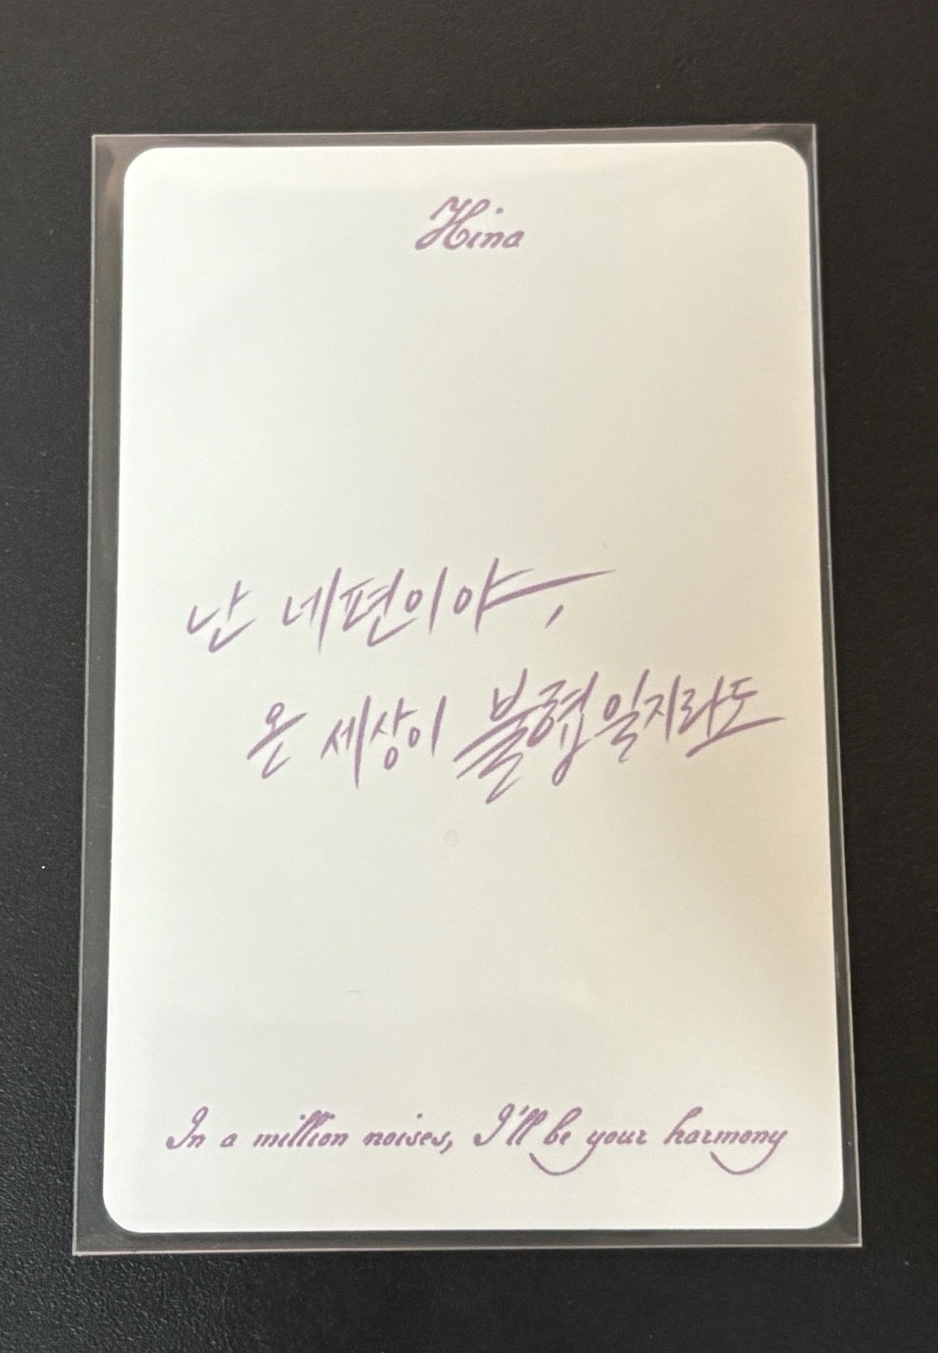 Hina
난 네편이야,
온 세상이 불협일지라도
In a million noises, I'll be your harmony